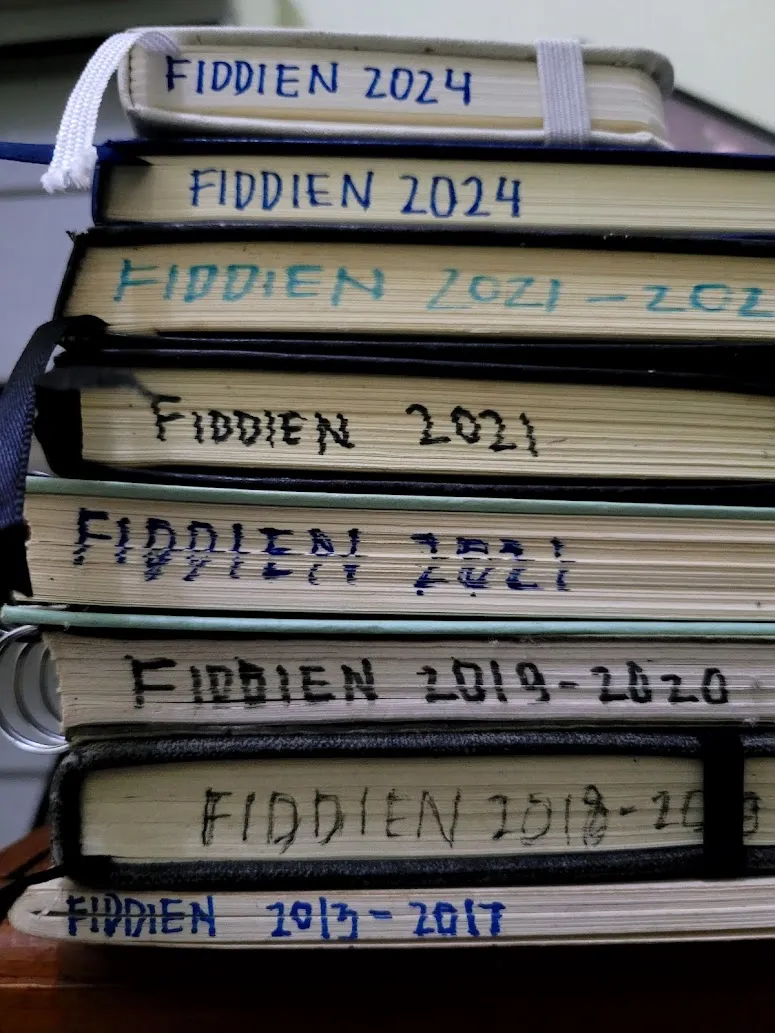 FIDDIEN 2024
FIDDIEN 2024
FIDDIEN 2021 - 202
FIDDIEN 2021
FIDDIEN 2021
FIDDIEN 2019-2020
FIDDIEN 2018-20
FIDDIEN 2013-2017